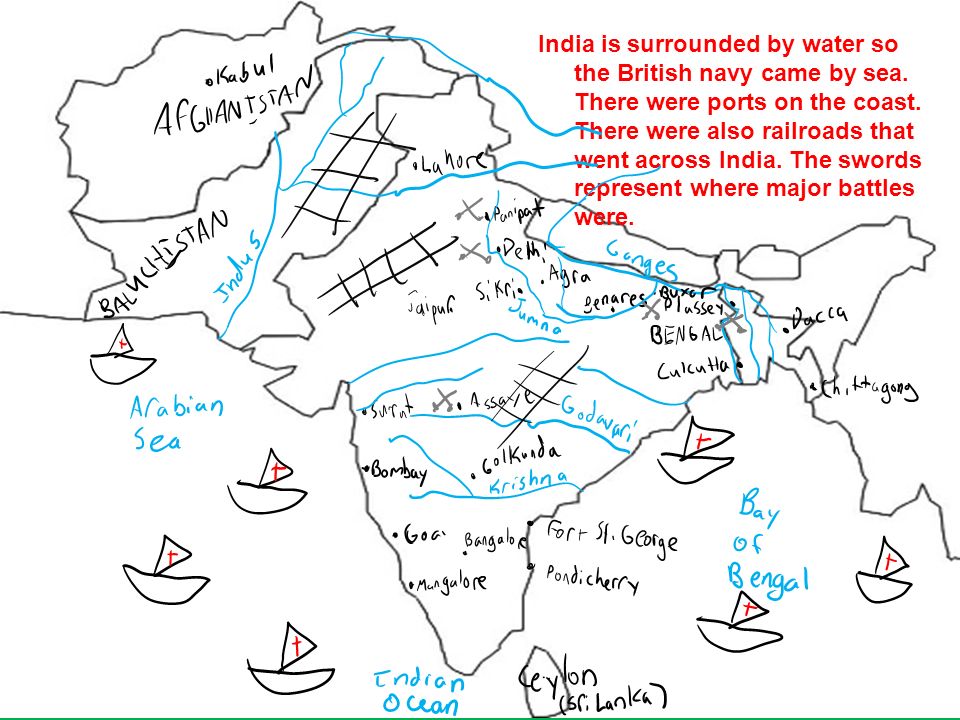 India is surrounded by water so
the British navy came by sea.
There were ports on the coast.
There were also railroads that
went across India. The swords
represent where major battles
were.
Kabul
AFGHANISTAN
Lahore
BALUCHISTAN
Indus
Panipat
Delhi
Agra
Sikri
Jaipur
Jumna
Ganges
Benares
Buxar
Plassey
BENGAL
Culcutta
Dacca
Chittagong
Arabian
Sea
Surut
Assaye
Godavari
Bombay
Golkunda
Krishna
Goa
Bangalore
Fort St. George
Mangalore
Pondicherry
Bay
of
Bengal
Indian
Ocean
Ceylon
(Sri Lanka)